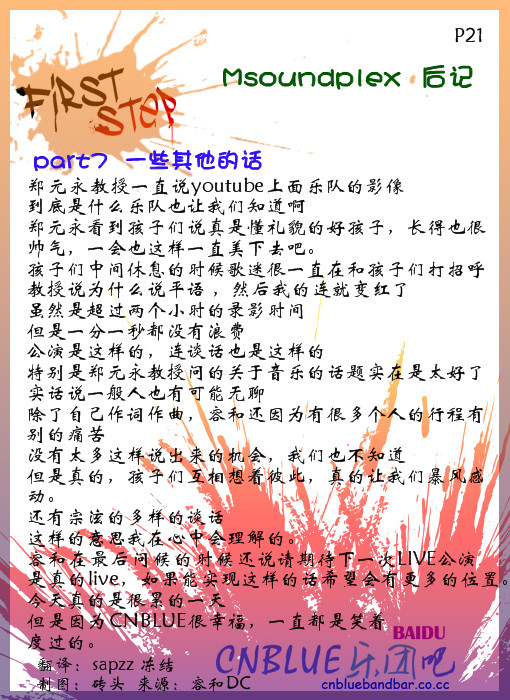 P21
Msoundplex 后记
FiRST
STEP
part7 一些其他的话
郑元永教授一直说youtube上面乐队的影像
到底是什么乐队也让我们知道啊
郑元永看到孩子们说真是懂礼貌的好孩子，长得也很
帅气，一会也这样一直美下去吧。
孩子们中间休息的时候歌迷很一直在和孩子们打招呼
教授说为什么说平语 ，然后我的连就变红了
虽然是超过两个小时的录影时间
但是一分一秒都没有浪费
公演是这样的，连谈话也是这样的
特别是郑元永教授问的关于音乐的话题实在是太好了
实话说一般人也有可能无聊
除了自己作词作曲，容和还因为有很多个人的行程有
别的痛苦
没有太多这样说出来的机会，我们也不知道
但是真的，孩子们互相想着彼此，真的让我们暴风感
动。
还有宗泫的多样的谈话
这样的意思我在心中会理解的。
容和在最后问候的时候还说请期待下一次LIVE公演
是真的live，如果能实现这样的话希望会有更多的位置。
今天真的是很累的一天
但是因为CNBLUE很幸福，一直都是笑着
度过的。
翻译：sapzz 冻结
制图：砖头 来源：容和DC
BAIDU
CNBLUE乐团吧
cnbluebandbar.co.cc